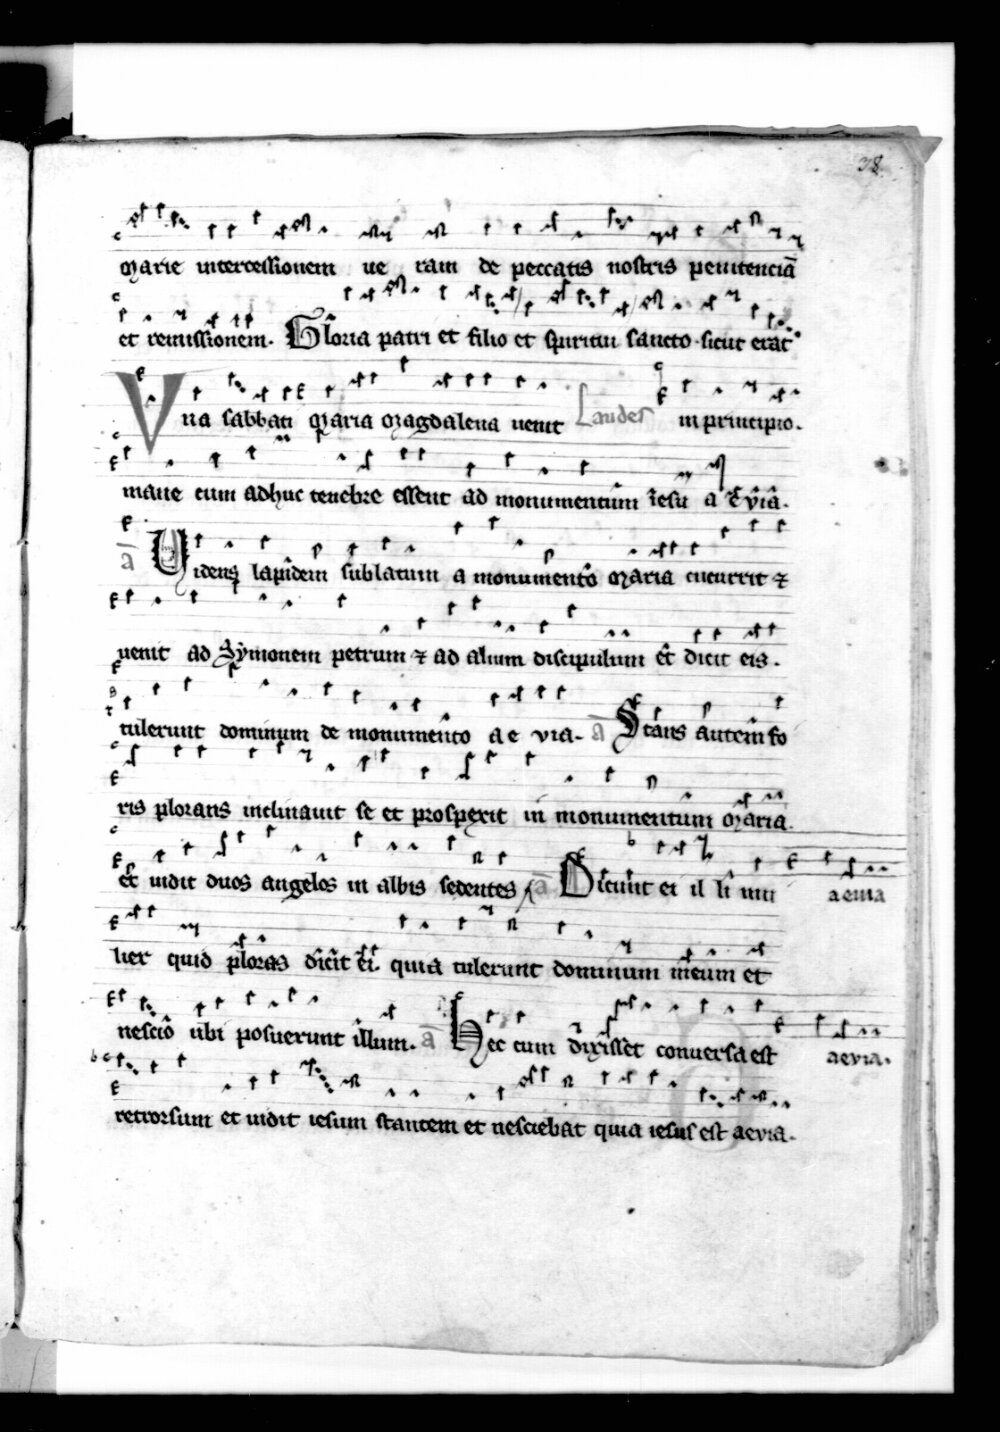 38
Marie intercessionem ue ram de peccatis nostris penitenciā
et remissionem. Gloria patri et filio et spiritui sancto sicut erat
Vna sabbati Maria Magdalena uenit Laudes in principio.
mane cum adhuc tenebre essent ad monumentum iesu a e via.
ā Videns lapidem sublatum a monumento Maria cucurrit ⁊
uenit ad Symonem petrum ⁊ ad alium discipulum et dicit eis.
tulerunt dominum de monumento a e via. ā Stans autem fo
ris plorans inclinauit se et prospexit in monumentum Maria.
et uidit duos angelos in albis sedentes ā Dicunt ei il li mu aeuia
lier quid ploras dicit ei. quia tulerunt dominum meum et
nescio ubi posuerunt illum. ā Hec cum dixisset conuersa est aevia.
retrorsum et uidit iesum stantem et nesciebat quia iesus est aevia.